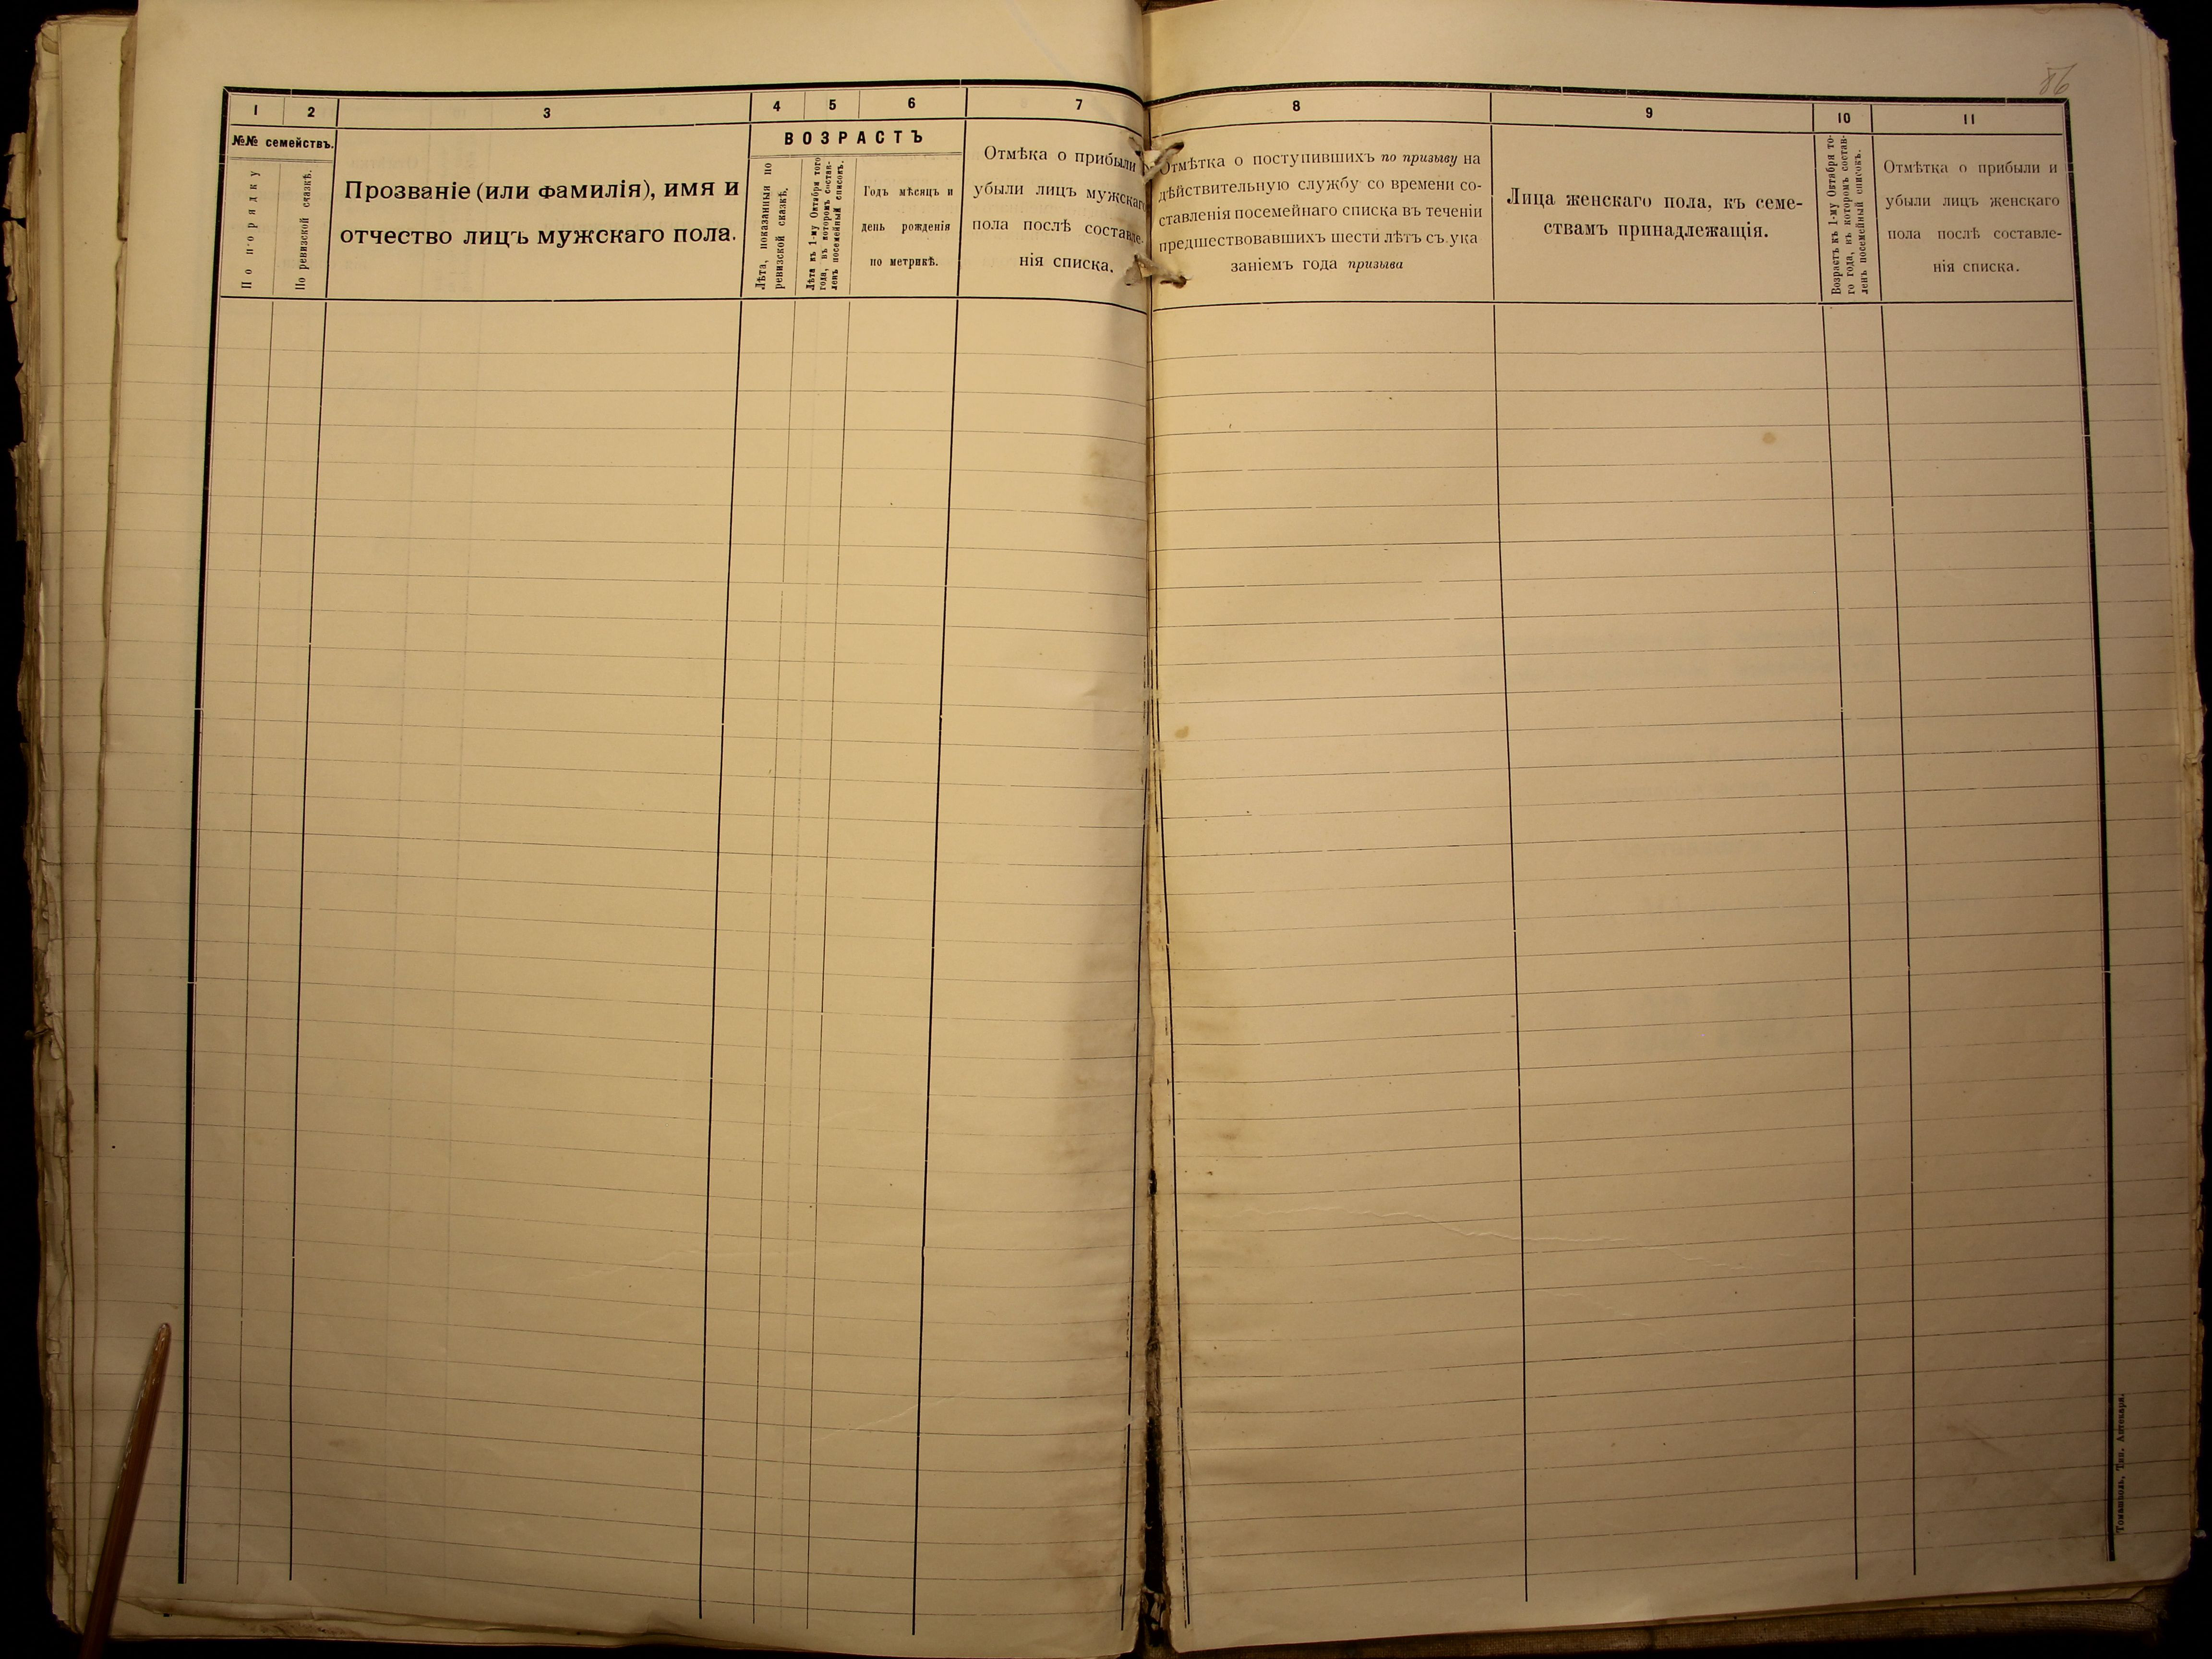 86
1
2
3
4
5
6
7
8
9
10
11
№№ семействъ.
По порядку
По ревизской сказкѣ.
Прозваніе (или фамилія), имя и
отчество лицъ мужскаго пола.
ВОЗРАСТЪ
Лѣта, показанныя по
ревизской сказкѣ.
Лѣта къ 1-му Октября того
года, въ которомъ состав-
ленъ посемейный списокъ.
Годъ мѣсяцъ и
день рожденія
по метрикѣ.
Отмѣка о прибыли
убыли лицъ мужскаго
пола послѣ составле-
нія списка.
Отмѣтка о поступившихъ по призыву на
дѣйствительную службу со времени со-
ставленія посемейнаго списка въ теченіи
предшествовавшихъ шести лѣтъ съ ука
заніемъ года призыва
Лица женскаго пола, къ семе-
ствамъ принадлежащія.
Возрастъ къ 1-му Октября то-
го года, въ которомъ состав-
ленъ посемейный списокъ.
Отмѣтка о прибыли и
убыли лицъ женскаго
пола послѣ составле-
нія списка.
Томашполь, Тип. Аптекаря.